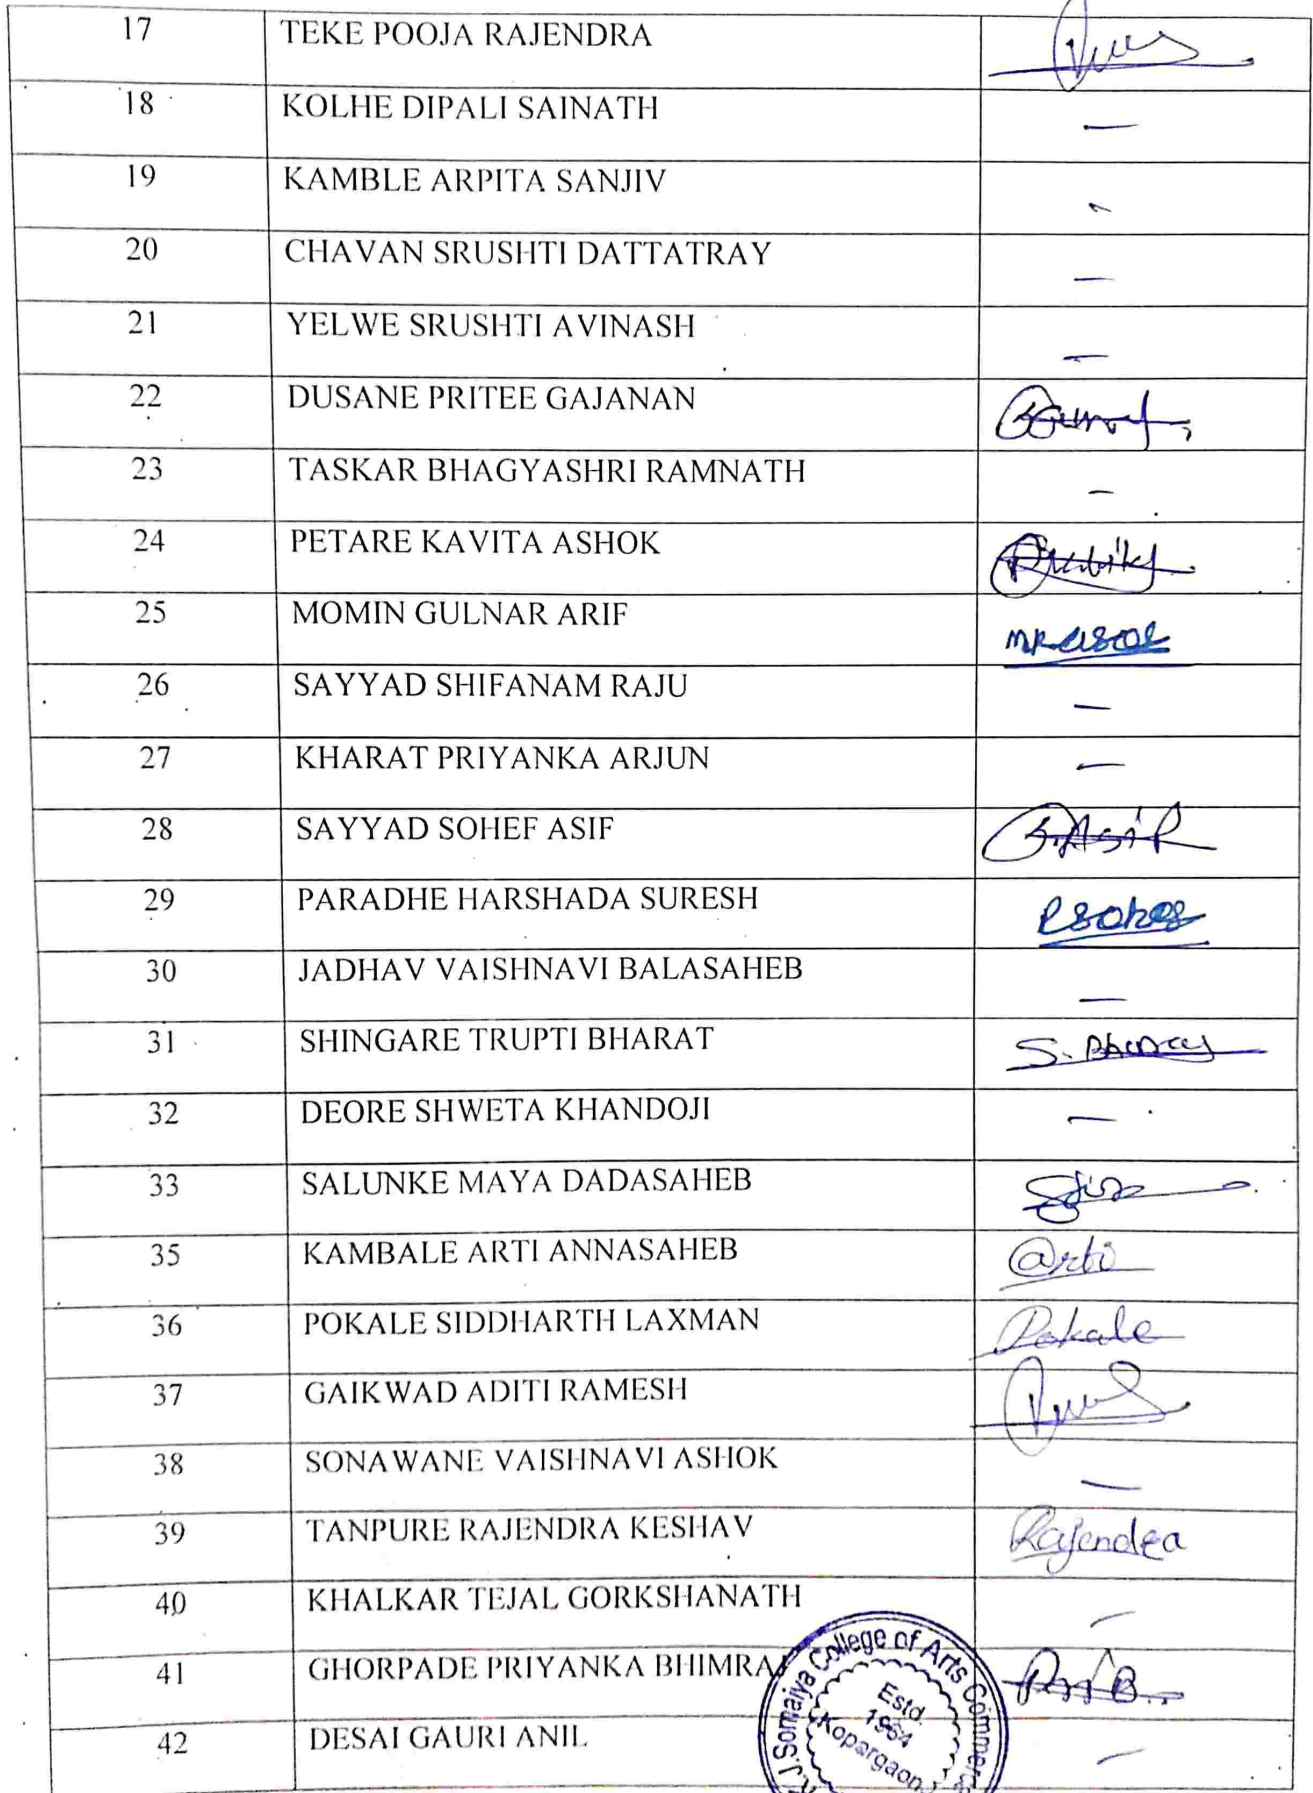 17 TEKE POOJA RAJENDRA
18 KOLHE DIPALI SAINATH —
19 KAMBLE ARPITA SANJIV -
20 CHAVAN SRUSHTI DATTATRAY —
21 YELWE SRUSHTI AVINASH —
22 DUSANE PRITEE GAJANAN
23 TASKAR BHAGYASHRI RAMNATH —
24 PETARE KAVITA ASHOK
25 MOMIN GULNAR ARIF
26 SAYYAD SHIFANAM RAJU —
27 KHARAT PRIYANKA ARJUN —
28 SAYYAD SOHEF ASIF
29 PARADHE HARSHADA SURESH
30 JADHAV VAISHNAVI BALASAHEB —
31 SHINGARE TRUPTI BHARAT
32 DEORE SHWETA KHANDOJI —
33 SALUNKE MAYA DADASAHEB
35 KAMBALE ARTI ANNASAHEB @rti
36 POKALE SIDDHARTH LAXMAN Pokale
37 GAIKWAD ADITI RAMESH
38 SONAWANE VAISHNAVI ASHOK —
39 TANPURE RAJENDRA KESHAV Rajendra
40 KHALKAR TEJAL GORKSHANATH —
41 GHORPADE PRIYANKA BHIMRA
42 DESAI GAURI ANIL —
J. Somaiya College of Arts Commer
Estd.
1964
Kopargaon